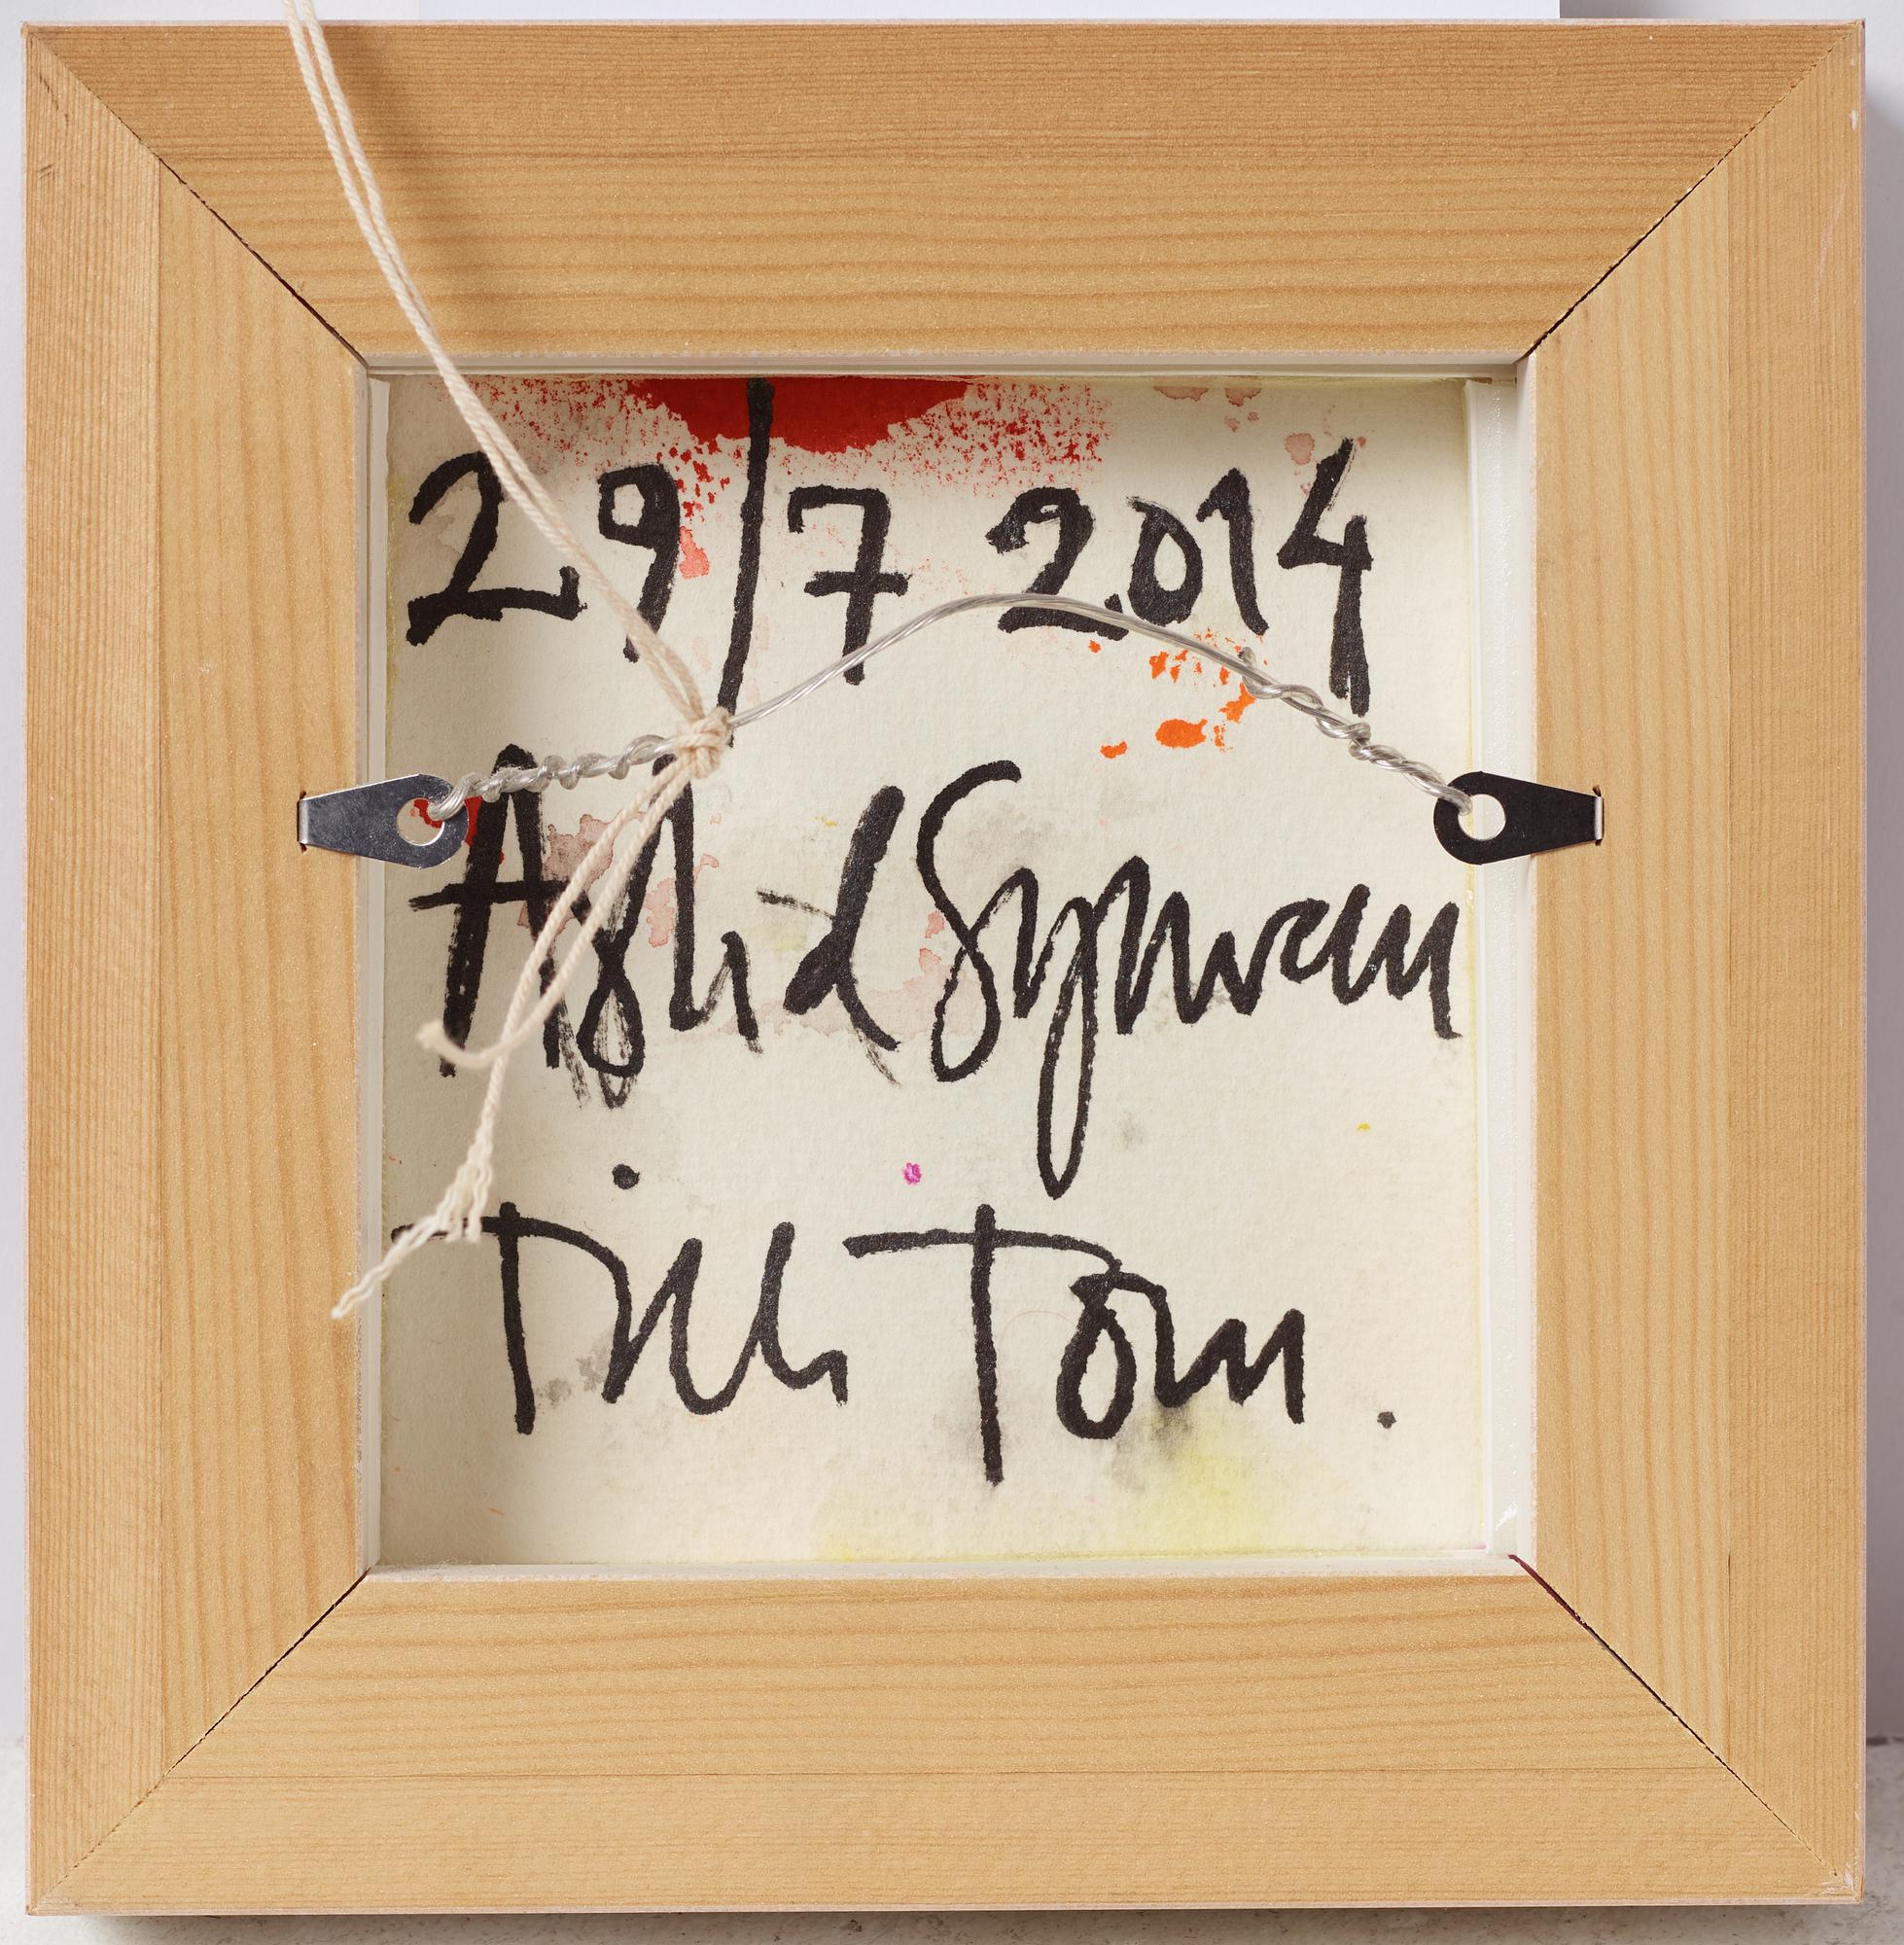 29/7 2014
Astrid Sylwan
Till Tom.